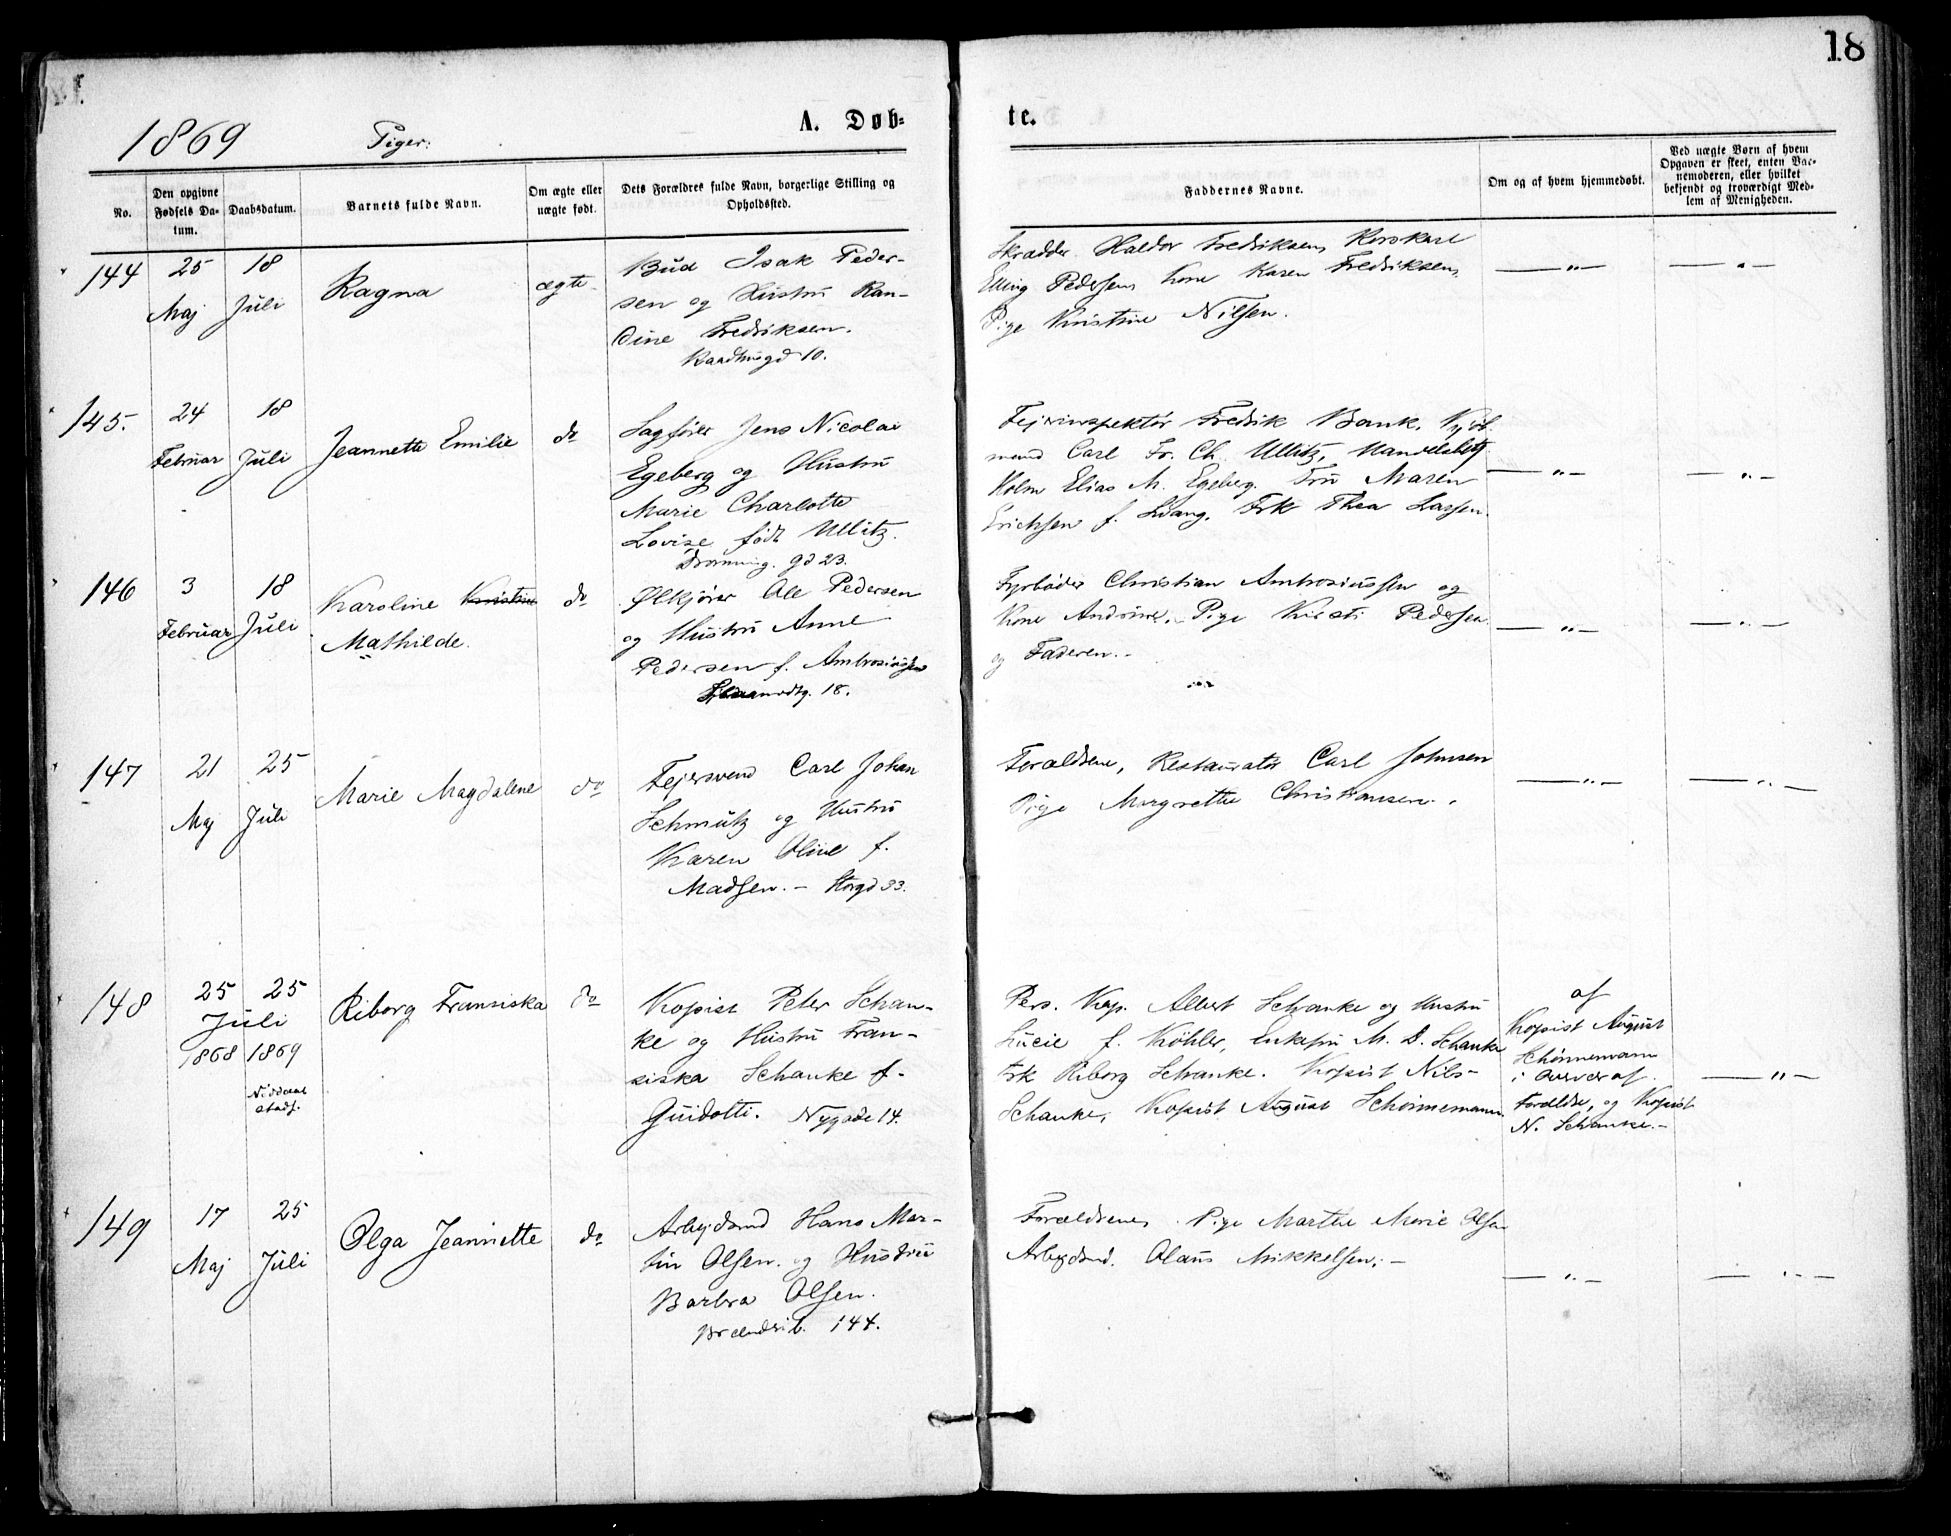 18
1869 Piger: A. Døb- te.
No.
Den opgivne Fødsels Da- tum.
Daabsdatum.
Barnets fulde Navn.
Om ægte eller uægte født.
Dets Forældres fulde Navn, borgerlige Stilling og Opholdssted.
Faddernes Navne.
Om og af hvem hjemmedøbt.
Ved uægte Børn af hvem Opgaven er skeet, enten Bar- nemoderen, eller hvilket bekjendt og troværdigt Med- lem af Menigheden.
144
25 Maj
18 Juli
Ragna
ægte
Bud Isak Peder-
sen og Hustru Ran-
dine Fredriksen.
Raadhusgd 10.
Skrædder Haldor Fredriksen,
Elling Pedersen, Kone Karen Fredriksen,
Pige Kristine Nilsen.
— " —
— " —
145.
24 Februar
18 Juli
Jeannette Emilie
do
Sagfører Jens Nicolai
Egeberg og Hustru
Marie Charlotte
Lovise født Ullitz.
Dronning. gd 23.
Fejerinspektør Fredrik Bank, Kjøb-
mand Carl Fr. Ch. Ullitz, Handelsbetj.
Holm Elias M. Egeberg. Fru Maren
Erichsen f. Svang. Frk Thea Larsen.
— " —
— " —
146
3 Februar
18 Juli
Karoline Kristine
Mathilde.
do
Ølkjører Ole Pedersen
og Hustru Anne
Pedersen f. Ambrosiussen
18.
Fyrbøder Christian Ambrosiussen og
Kone Andrine. Pige Kirsti Pedersen
og Faderen.-
— " —
— " —
147
21 Maj
25 Juli
Marie Magdalene
do
Fejersvend Carl Johan
Schmutz og Hustru
Karen Oline f.
Madsen. - Storgd 33.
Forældrene, Restauratør Carl Johnsen
Pige Margrethe Christiansen.
— " —
— " —
148
25 25
Juli
1868 1869
Riborg Fransiska
do
Kopist Peter Schan-
ke og Hustru Fran-
siska Schanke f.
Guidotti. Nygade 14.
Pers. Kap. Albert Schanke og Hustru
Lucie f. Köhler, Enkefru M. D. Schanke
Frk Riborg Schanke. Kopist Nils
Schanke, Kopist August Schønnemann.
af
Kopist August
Schønnemann
i Overvær af
Forældre, og Kopist
N. Schanke.-
— " —
149
17 Maj
25 Juli
Olga Jeannette
do
Arbejdsmd Hans Mar-
tin Olsen og Hustru
Barbra Olsen.
144.
Forældrene, Pige Marthe Marie Olsen
Arbejdsmd. Olaus Mikkelsen.-
— " —
— " —